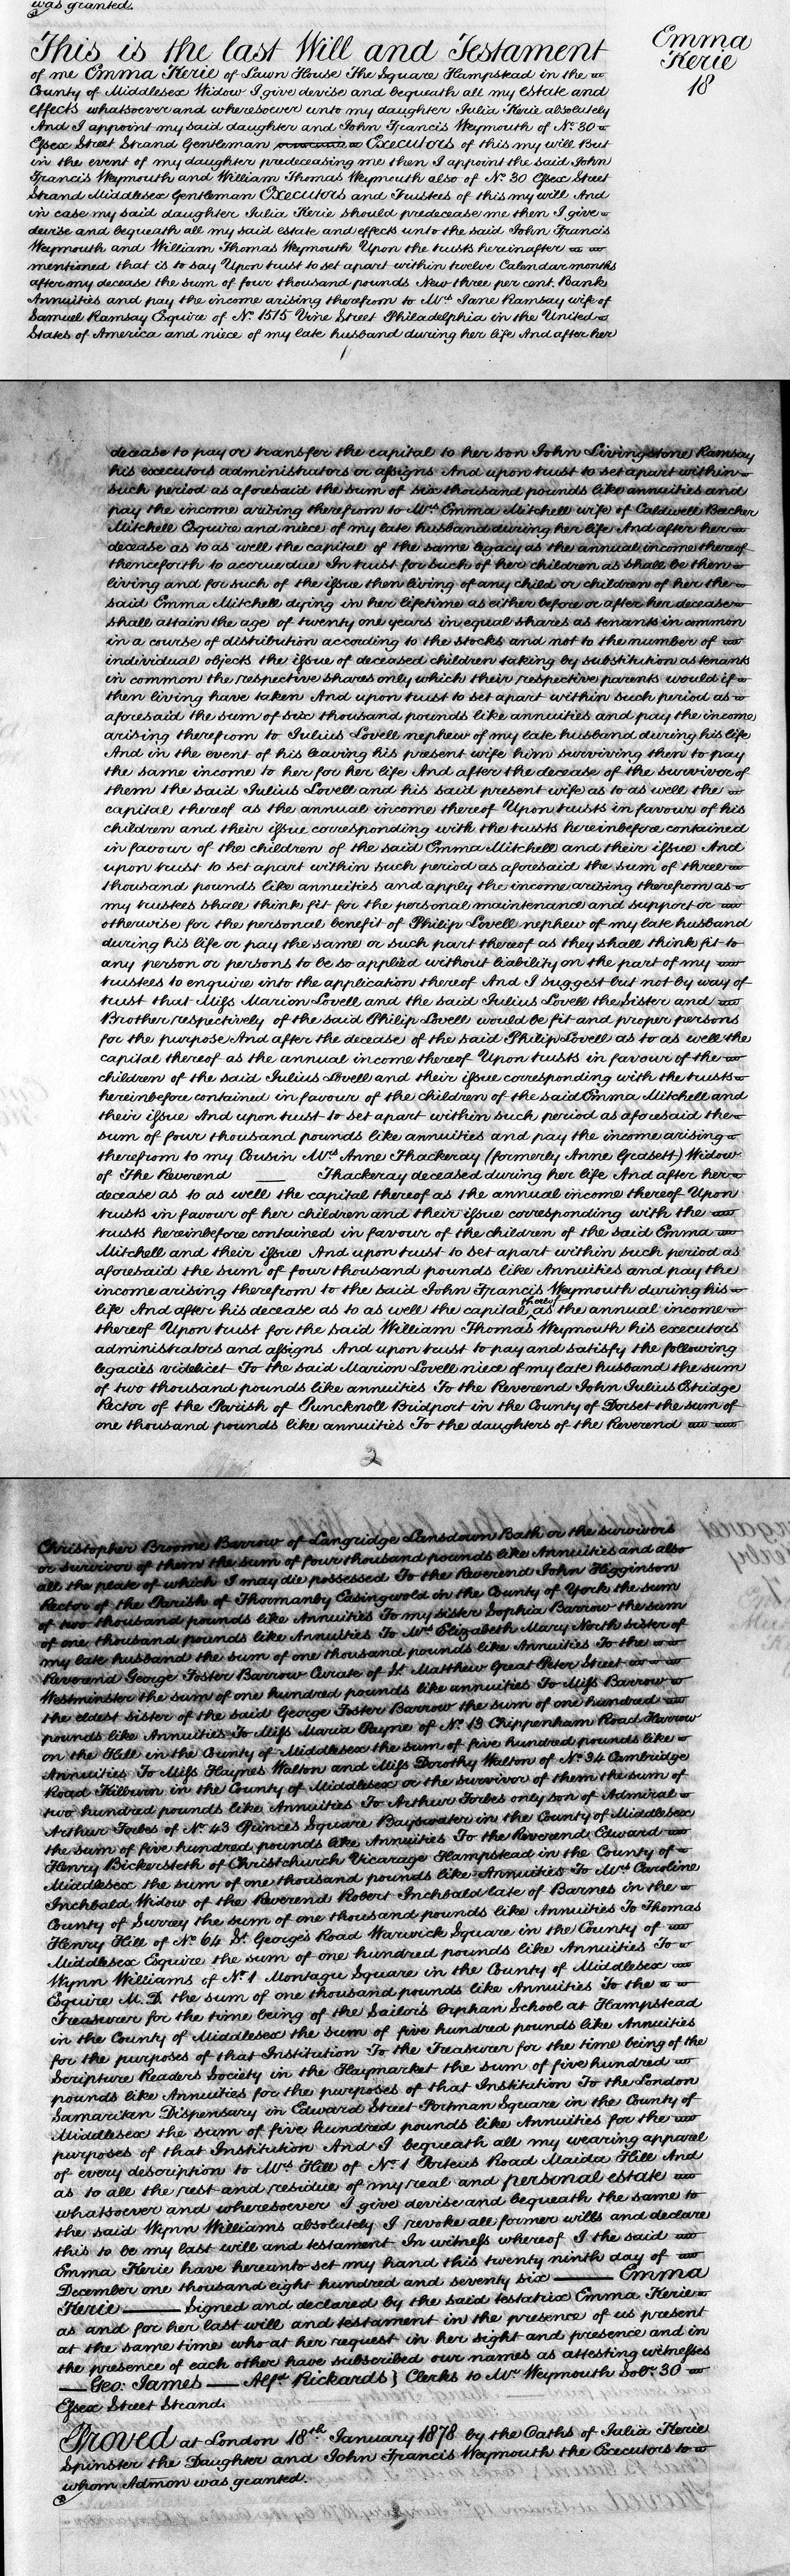 was granted.
Emma
Kerie
18
This is the last Will and Testament
of me Emma Kerie of Lawn House The Square Hampstead in the
County of Middlesex Widow I give devise and bequeath all my estate and
effects whatsoever and wheresoever unto my daughter Julia Kerie absolutely
And I appoint my said daughter and John Francis Weymouth of No. 30
Essex Street Strand Gentleman Executors of this my will But
in the event of my daughter predeceasing me then I appoint the said John
Francis Weymouth and William Thomas Weymouth also of No. 30 Essex Street
Strand Middlesex Gentleman Executors and Trustees of this my will And
in case my said daughter Julia Kerie should predecease me then I give
devise and bequeath all my said estate and effects unto the said John Francis
Weymouth and William Thomas Weymouth Upon the trusts hereinafter
mentioned that is to say Upon trust to set apart within twelve Calendar months
after my decease the sum of four thousand pounds New three per cent. Bank
Annuities and pay the income arising therefrom to Mrs Jane Ramsay wife of
Samuel Ramsay Esquire of No. 1515 Vine Street Philadelphia in the United
States of America and niece of my late husband during her life And after her
1
decease to pay or transfer the capital to her son John Livingstone Ramsay
his executors administrators or assigns And upon trust to set apart within
such period as aforesaid the sum of six thousand pounds like annuities and
pay the income arising therefrom to Mrs Emma Mitchell wife of Caldwell Bacher
Mitchell Esquire and niece of my late husband during her life And after her
decease as to as well the capital of the same legacy as the annual income thereof
thenceforth to accrue due In trust for such of her children as shall be then
living and for such of the issue then living of any child or children of her the
said Emma Mitchell dying in her lifetime as either before or after her decease
shall attain the age of twenty one years in equal shares as tenants in common
in a course of distribution according to the stocks and not to the number of
individual objects the issue of deceased children taking by substitution as tenants
in common the respective shares only which their respective parents would if
then living have taken And upon trust to set apart within such period as
aforesaid the sum of six thousand pounds like annuities and pay the income
arising therefrom to Julius Lovell nephew of my late husband during his life
And in the event of his leaving his present wife him surviving then to pay
the same income to her for her life And after the decease of the survivor of
them the said Julius Lovell and his said present wife as to as well the
capital thereof as the annual income thereof Upon trusts in favour of his
children and their issue corresponding with the trusts hereinbefore contained
in favour of the children of the said Emma Mitchell and their issue And
upon trust to set apart within such period as aforesaid the sum of three
thousand pounds like annuities and apply the income arising therefrom as
my trustees shall think fit for the personal maintenance and support or
otherwise for the personal benefit of Philip Lovell nephew of my late husband
during his life or pay the same or such part thereof as they shall think fit to
any person or persons to be so applied without liability on the part of my
trustees to enquire into the application thereof And I suggest but not by way of
trust that Miss Marion Lovell and the said Julius Lovell the Sister and
Brother respectively of the said Philip Lovell would be fit and proper persons
for the purpose And after the decease of the said Philip Lovell as to as well the
capital thereof as the annual income thereof Upon trusts in favour of the
children of the said Julius Lovell and their issue corresponding with the trusts
hereinbefore contained in favour of the children of the said Emma Mitchell and
their issue And upon trust to set apart within such period as aforesaid the
sum of four thousand pounds like annuities and pay the income arising
therefrom to my Cousin Mrs Anne Thackeray (formerly Anne Grasett) Widow
of The Reverend — Thackeray deceased during her life And after her
decease as to as well the capital thereof as the annual income thereof Upon
trusts in favour of her children and their issue corresponding with the
trusts hereinbefore contained in favour of the children of the said Emma
Mitchell and their issue And upon trust to set apart within such period as
aforesaid the sum of four thousand pounds like Annuities and pay the
income arising therefrom to the said John Francis Weymouth during his
life And after his decease as to as well the capital thereof as the annual income
thereof Upon trust for the said William Thomas Weymouth his executors
administrators and assigns And upon trust to pay and satisfy the following
legacies videlicet To the said Marion Lovell niece of my late husband the sum
of two thousand pounds like annuities To the Reverend John Julius Estridge
Rector of the Parish of Puncknoll Bridport in the County of Dorset the sum of
one thousand pounds like annuities To the daughters of the Reverend
2
Christopher Broome Barrow of Langridge Lansdown Bath or the survivors
or survivor of them the sum of four thousand pounds like Annuities and also
all the plate of which I may die possessed To the Reverend John Higginson
Rector of the Parish of Thormanby Easingwold in the County of York the sum
of two thousand pounds like Annuities To my sister Sophia Barrow the sum
of one thousand pounds like Annuities To Mrs Elizabeth Mary North sister of
my late husband the sum of one thousand pounds like Annuities To the
Reverend George Foster Barrow Curate of St. Matthew Great Peter Street
Westminster the sum of one hundred pounds like annuities To Miss Barrow
the eldest sister of the said George Foster Barrow the sum of one hundred
pounds like Annuities To Miss Maria Payne of No. 13 Chippenham Road Harrow
on the Hill in the County of Middlesex the sum of five hundred pounds like
Annuities To Miss Haynes Walton and Miss Dorothy Walton of No. 94 Cambridge
Road Kilburn in the County of Middlesex or the survivor of them the sum of
two hundred pounds like Annuities To Arthur Forbes only son of Admiral
Arthur Forbes of No. 43 Princes Square Bayswater in the County of Middlesex
the sum of five hundred pounds like Annuities To the Reverend Edward
Henry Bickersteth of Christchurch Vicarage Hampstead in the County of
Middlesex the sum of one thousand pounds like Annuities To Mrs Caroline
Inchbald Widow of the Reverend Robert Inchbald late of Barnes in the
County of Surrey the sum of one thousand pounds like Annuities To Thomas
Henry Hill of No. 64 St. George's Road Warwick Square in the County of
Middlesex Esquire the sum of one hundred pounds like Annuities To
Wynn Williams of No. 1 Montagu Square in the County of Middlesex
Esquire M.D. the sum of one thousand pounds like Annuities To the
Treasurer for the time being of the Sailor's Orphan School at Hampstead
in the County of Middlesex the sum of five hundred pounds like Annuities
for the purposes of that Institution To the Treasurer for the time being of the
Scripture Readers Society in the Haymarket the sum of five hundred
pounds like Annuities for the purposes of that Institution To the London
Samaritan Dispensary in Edward Street Portman Square in the County of
Middlesex the sum of five hundred pounds like Annuities for the
purposes of that Institution And I bequeath all my wearing apparel
of every description to Mrs Hill of No. 1 Porteus Road Maida Hill And
as to all the rest and residue of my real and personal estate
whatsoever and wheresoever I give devise and bequeath the same to
the said Wynn Williams absolutely I revoke all former wills and declare
this to be my last will and testament In witness whereof I the said
Emma Kerie have hereunto set my hand this twenty ninth day of
December one thousand eight hundred and seventy six — Emma
Kerie — Signed and declared by the said testatrix Emma Kerie
as and for her last will and testament in the presence of us present
at the same time who at her request in her sight and presence and in
the presence of each other have subscribed our names as attesting witnesses
— Geo: James — Alfd Rickards } Clerks to Mr Weymouth Solr. 30
Essex Street Strand.
Proved at London 18th January 1878 by the Oaths of Julia Kerie
Spinster the Daughter and John Francis Weymouth the Executors to
whom Admon was granted.
3